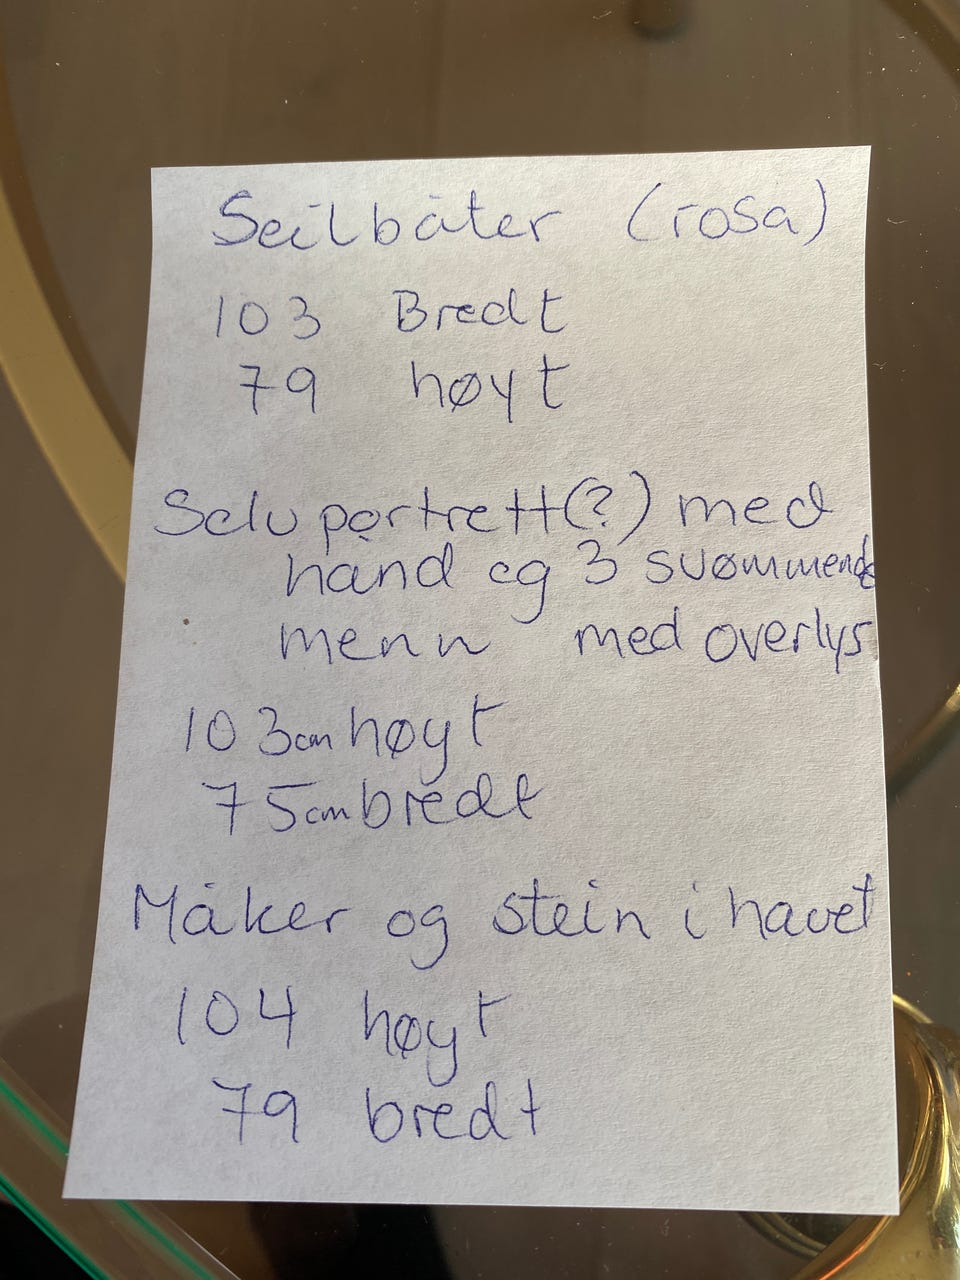 Seilbåter (rosa)
103 Bredt
79 høyt
Selvportrett(?) med
hånd og 3 svømmende
menn med overlys
103cm høyt
75cm bredt
Måker og stein i havet
104 høyt
79 bredt